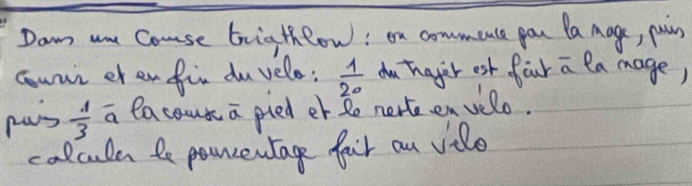 Dans une Course triathlow : on commence par la nage, puis
courir et en fin du vélo : 1/20 du trajet est fait à la nage,
puis 1/3 à la course à pied et le reste en vélo.
calculer le pourcentage fait au vélo